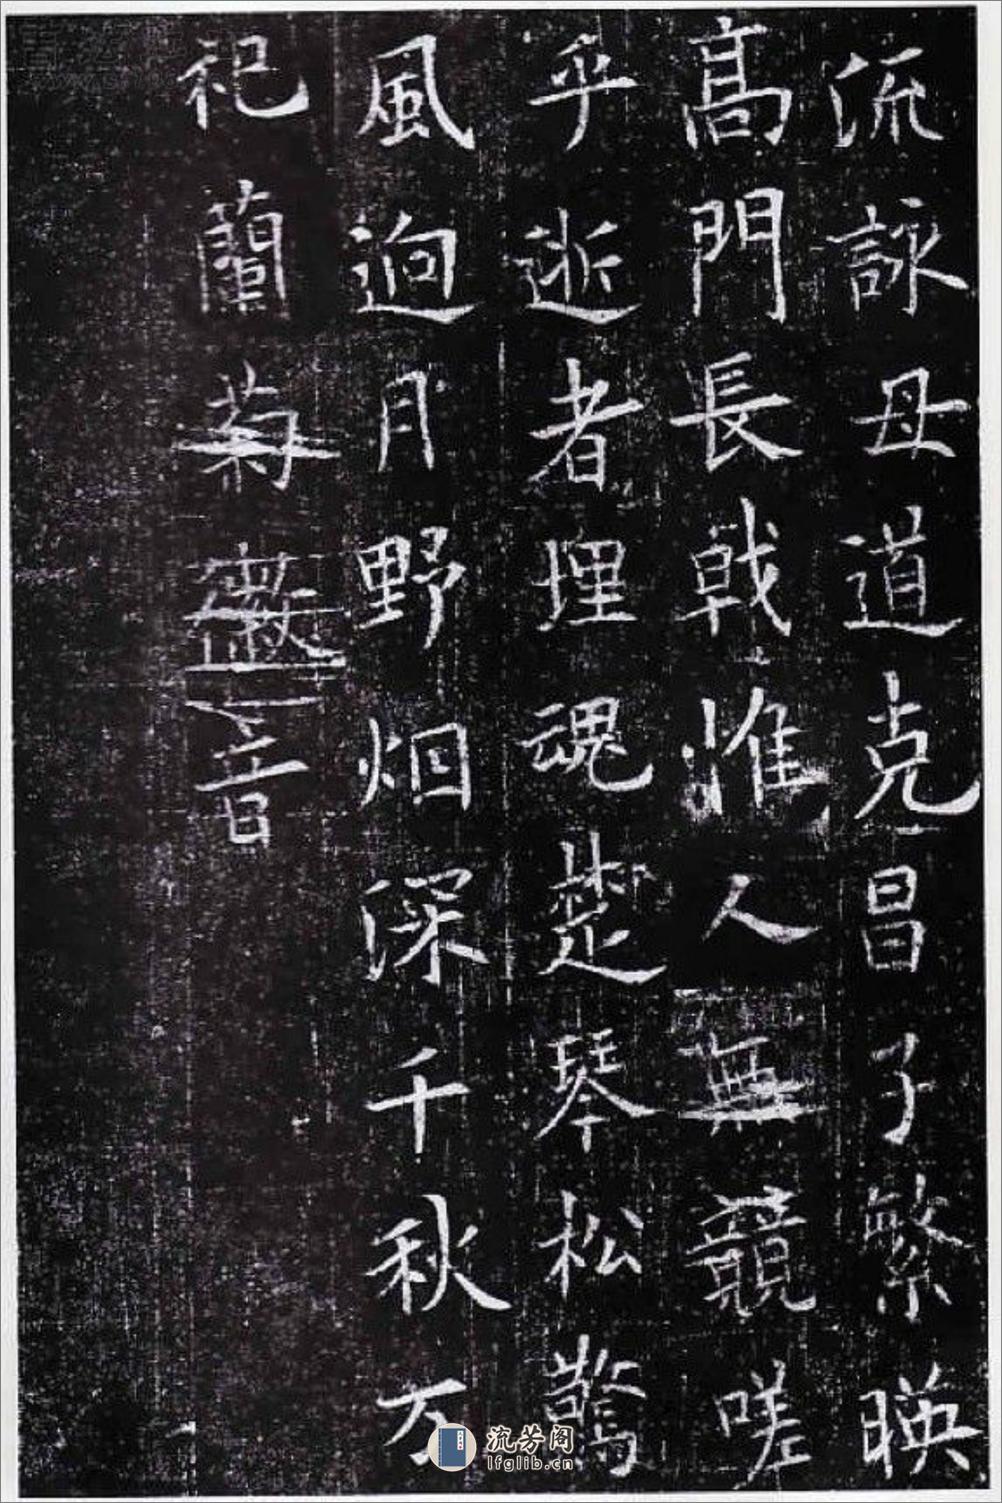 流詠母道克昌子繁暎
高門長戟惟人無競嗟
乎逝者埋魂楚琴松驚
風逈月野烟深千秋万
祀蘭菊㣲音
流芳阁
lfglib.cn